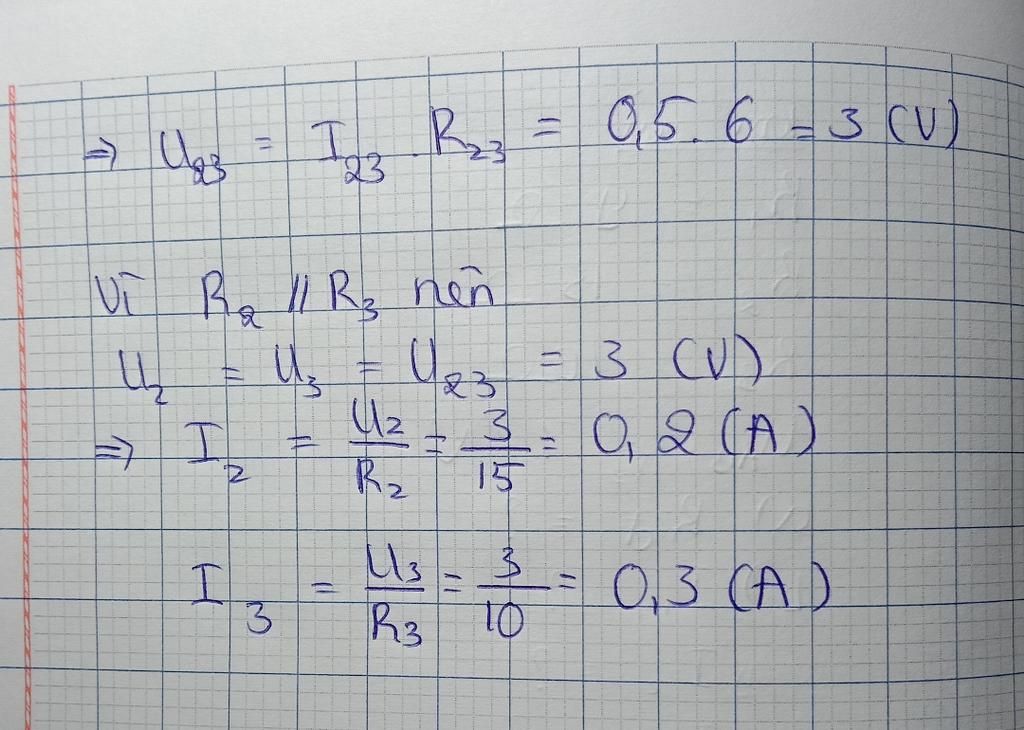 ⇒ U₂₃ = I₂₃ . R₂₃ = 0,5 . 6 = 3 (V)
Vì R₂ // R₃ nên
U₂ = U₃ = U₂₃ = 3 (V)
⇒ I₂ = U₂/R₂ = 3/15 = 0,2 (A)
I₃ = U₃/R₃ = 3/10 = 0,3 (A)